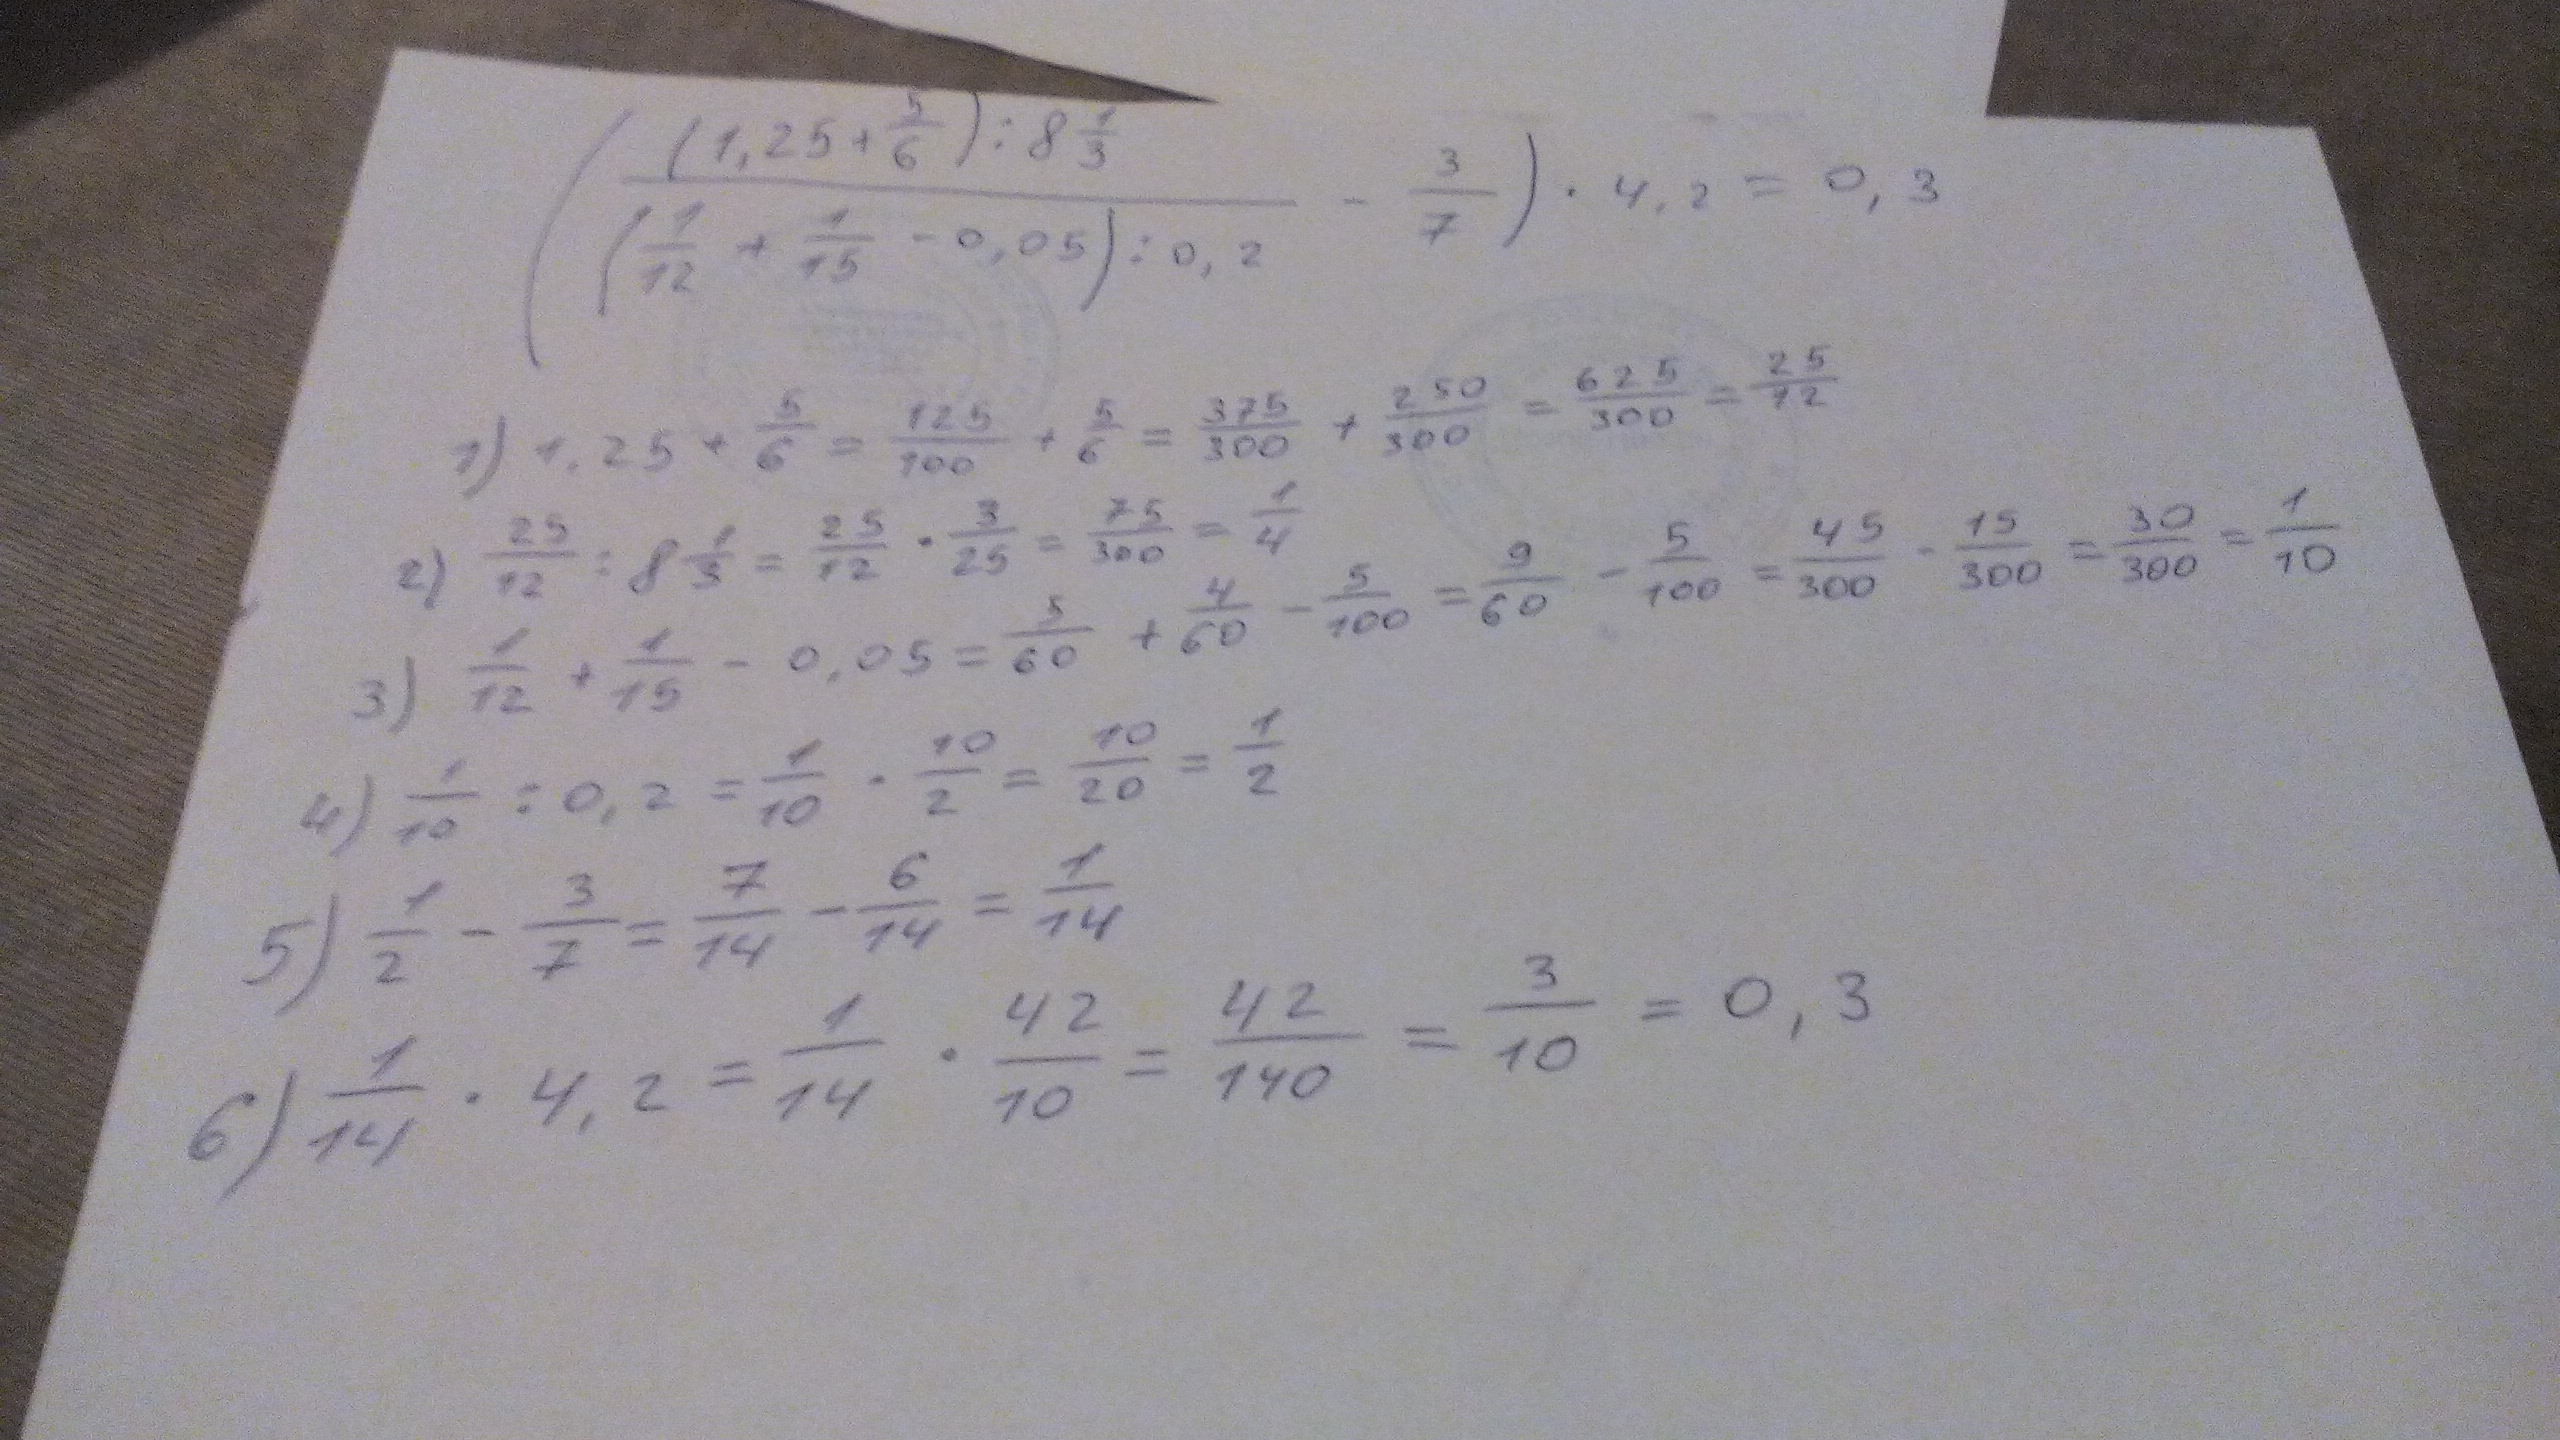 ((1,25+5/6):8 1/3)/((1/12 + 1/15 - 0,05):0,2) - 3/7) · 4,2 = 0,3
1) 1,25 + 5/6 = 125/100 + 5/6 = 375/300 + 250/300 = 625/300 = 25/12
2) 25/12 : 8 1/3 = 25/12 · 3/25 = 75/300 = 1/4
3) 1/12 + 1/15 - 0,05 = 5/60 + 4/60 - 5/100 = 9/60 - 5/100 = 45/300 - 15/300 = 30/300 = 1/10
4) 1/10 : 0,2 = 1/10 · 10/2 = 10/20 = 1/2
5) 1/2 - 3/7 = 7/14 - 6/14 = 1/14
6) 1/14 · 4,2 = 1/14 · 42/10 = 42/140 = 3/10 = 0,3